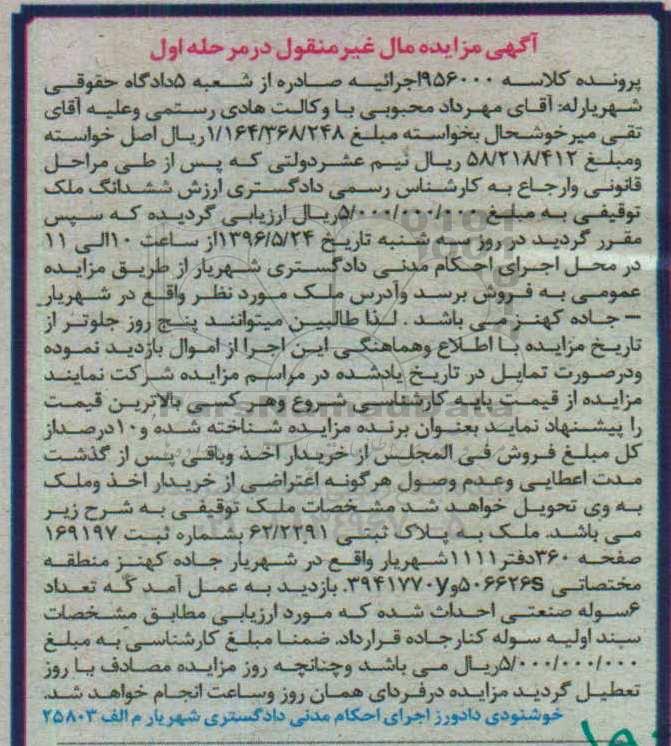 آگهی مزایده مال غیرمنقول درمرحله اول
پرونده کلاسه ۹۵۶۰۰۰اجرائیه صادره از شعبه ۵دادگاه حقوقی
شهریارله: آقای مهرداد محبوبی با وکالت هادی رستمی وعلیه آقای
تقی میرخوشحال بخواسته مبلغ ۱/۱۶۴/۳۶۸/۲۴۸ریال اصل خواسته
ومبلغ ۵۸/۲۱۸/۴۱۲ ریال نیم عشردولتی که پس از طی مراحل
قانونی وارجاع به کارشناس رسمی دادگستری ارزش ششدانگ ملک
توقیفی به مبلغ ۵/۰۰۰/۰۰۰/۰۰۰ریال ارزیابی گردیده که سپس
مقرر گردید در روز سه شنبه تاریخ ۱۳۹۶/۵/۲۴از ساعت ۱۰الی ۱۱
در محل اجرای احکام مدنی دادگستری شهریار از طریق مزایده
عمومی به فروش برسد وآدرس ملک مورد نظر واقع در شهریار
– جاده کهنز می باشد . لذا طالبین میتوانند پنج روز جلوتر از
تاریخ مزایده با اطلاع وهماهنگی این اجرا از اموال بازدید نموده
ودرصورت تمایل در تاریخ یادشده در مراسم مزایده شرکت نمایند
مزایده از قیمت پایه کارشناسی شروع وهر کسی بالاترین قیمت
را پیشنهاد نماید بعنوان برنده مزایده شناخته شده و۱۰درصداز
کل مبلغ فروش فی المجلس از خریدار اخذ وباقی پس از گذشت
مدت اعطایی وعدم وصول هرگونه اعتراضی از خریدار اخذ وملک
به وی تحویل خواهد شد مشخصات ملک توقیفی به شرح زیر
می باشد. ملک به پلاک ثبتی ۶۲/۲۲۹۱ بشماره ثبت ۱۶۹۱۹۷
صفحه ۳۶۰دفتر۱۱۱۱شهریار واقع در شهریار جاده کهنز منطقه
مختصاتی ۵۰۶۶۲۶sو۳۹۴۱۷۷۰y. بازدید به عمل آمد که تعداد
۶سوله صنعتی احداث شده که مورد ارزیابی مطابق مشخصات
سند اولیه سوله کنارجاده قرارداد. ضمنا مبلغ کارشناسی به مبلغ
۵/۰۰۰/۰۰۰/۰۰۰ریال می باشد وچنانچه روز مزایده مصادف با روز
تعطیل گردید مزایده درفردای همان روز وساعت انجام خواهد شد.
خوشنودی دادورز اجرای احکام مدنی دادگستری شهریار م الف ۲۵۸۰۳